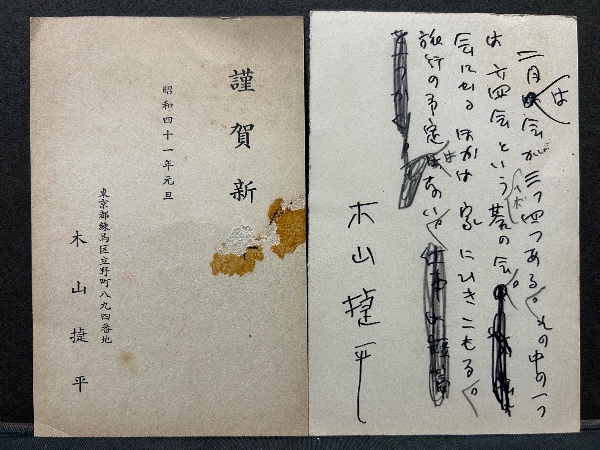 謹賀新
昭和四十一年元旦
東京都練馬区立野町八九四番地
木山捷平
二月は会が三つ四つある。その中の一つ
は六四会という碁の会。
会に出るほかは家にひきこもる。
旅行の予定はない。
木山捷平